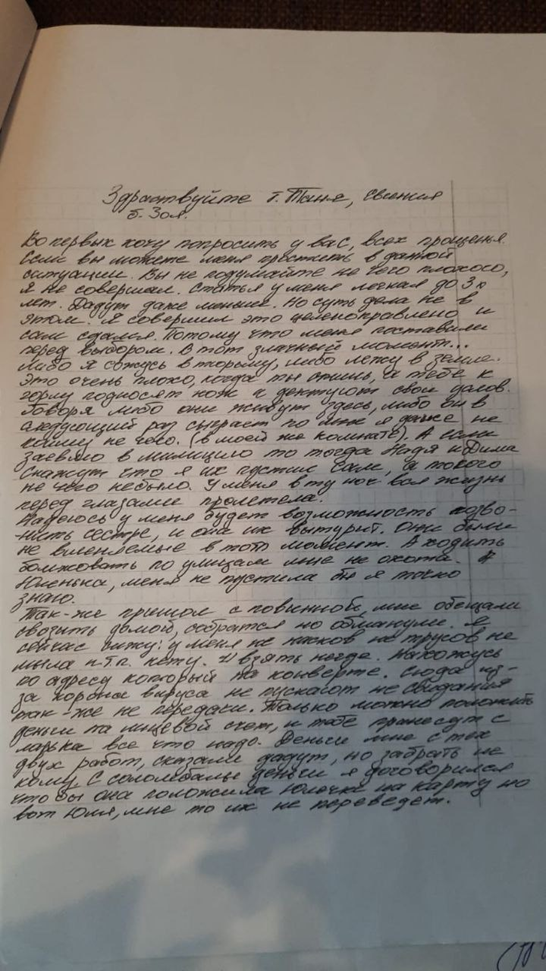 Здраствуйте т. Таня, Евгения
б. Зоя.
Во первых хочу попросить у вас, всех прощенья
если вы можете меня простить в данной
ситуации. Вы не подумайте не чего плохого,
я не совершал. Статья у меня легкая до 3х
лет. Дадут даже меньше. Но суть дела не в
этом. Я совершил это целеноправлено и
сам сдался. Потому что меня поставили
перед выбором. В тот злачный момент...
либо я сажусь в тюрьму, либо лежу в земле.
Это очень плохо, когда ты спишь, а тебе к
горлу подносят нож и диктуют свои
Говоря либо они живут здесь, либо он в
следующий раз сыграет по мне я даже не
кипишу не чего. (в моей же комнате). А если
заевлю в милицию то тогда Надя и Дима
скажут что я их пустил сам, а такого
не чего небыло. У меня в ту ночь вся жизнь
перед глазами пролетела.
Надеюсь у меня будет возможность позво-
нить сестре, и она их вытурит. Они были
не вменяемые в тот момент. А ходить
бомжовать по улицам мне не охота.
Юленька, меня не пустила бы я точно
знаю.
Так-же пришол с повинной, мне обещали
свозить домой, собратся но обманули. Я
сейчас сижу: у меня не носков не трусов не
мыла и т.п. нету. И взять негде. Нахожусь
по адресу который на конверте. Сюда из-
за корона вируса не пускают не свидания
так-же не передачи. Только можно положить
деньги на лицевой счет, и тебе принесут с
ларька все что надо. Деньги мне с тех
двух работ, сказали дадут, но забрать не
кому. С соломбалы деньги я договорился
что бы она положила Юлечке на карту но
вот Юля, мне то их не переведет.